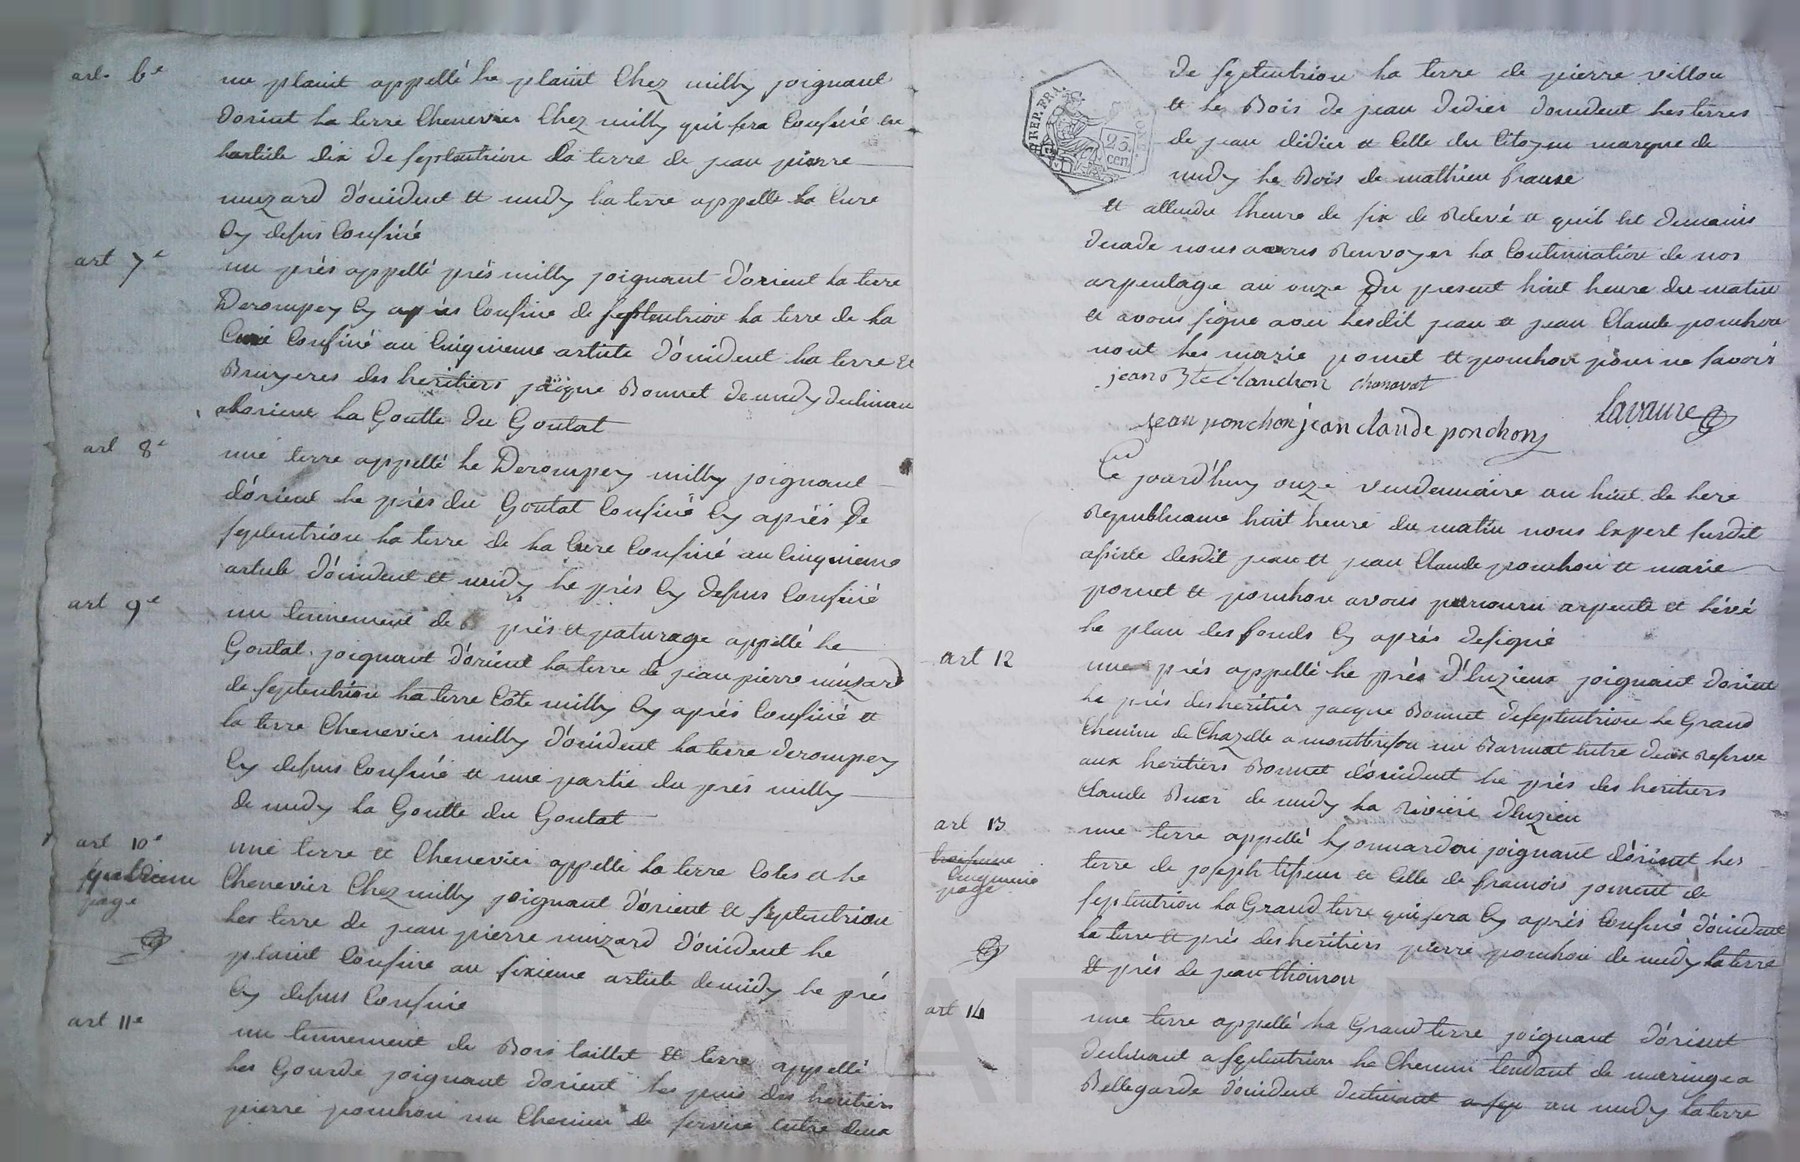 art. 6e
un plant appellé le plant Chez milly joignant
d'orient la terre Chenevier Chez milly qui sera Confiné en
l'article dix de septentrion la terre de jean pierre
muzard d'oxident et midy la terre appellé la Cure
Cy desus Confiné
art 7e
un prés appellé prés milly joignant d'orient la terre
Derompey Cy aprés Confiné de septentrion la terre de la
Cure Confiné au Cinquieme article d'oxident la terre et
Bruyeres des heritiers jacque Bonnet de midy declinant
alorient la Goutte du Goutat
art 8e
une terre appellé le Derompey milly joignant
d'orient le prés du Goutat Confiné Cy aprés De
septentrion la terre de la Cure Confiné au Cinquieme
article d'oxident et midy le prés Cy desus Confiné
art 9e
un tennement de prés et paturage appellé le
Goutat joignant d'orient la terre de jean pierre muzard
de septentrion la terre Côte milly Cy aprés Confiné et
la terre Chenevier milly d'oxident la terre derompey
Cy desus Confiné et une partie du prés milly
de midy la Goutte du Goutat
art 10e
quatrieme
page
une terre et Chenevier appellé la terre Cotes et le
Chenevier Chez milly joignant d'orient et septentrion
les terre de jean pierre muzard d'oxident le
plant Confiné au sixieme article de midy le prés
Cy desus Confiné
art 11e
un tennement de Bois taillit et terre appellé
les Gourde joignant d'orient les heritiers
pierre ponchon un Chemin de service entre deux
REP. FRA.
25
cen.
de septentrion la terre de pierre villon
et le Bois de jean didier d'oxident les terres
de jean didier et Celle du Citoyen marque de
midy le Bois de mathieu france
et attendu l'heure de six de Relevé et quil est demain
decade nous avons Renvoyer la Continuation de nos
arpentage au onze Du present huit heure du matin
et avons signe avec lesdit jean et jean Claude ponchon
nont les marie pomet et ponchon pour ne savoir
jean Bte Chanavat
jean ponchon jean claude ponchon
Lavaure
Ce jourd'huy onze vendemiaire an huit de lere
Republicaine huit heure du matin nous Expert susdit
asisté desdit jean et jean Claude ponchon et marie
pomet et ponchon avons parcouru arpenté et levé
le plan des fonds Cy aprés designé
art 12
une prés appellé le prés d'luzieux joignant d'orient
le prés des heritier jacque Bonnet deseptentrion le Grand
Chemin de Chazelle a montbrison un entre deux Reservé
aux heritiers Bonnet d'oxident le prés des heritiers
Claude de midy la Riviere d'luzieu
art 13
troisieme
Cinquieme
page
une terre appellé joignant d'orient les
terre de joseph tiseur et Celle de francois joment de
septentrion la Grand terre qui sera Cy aprés Confiné d'oxident
la terre et prés des heritiers pierre ponchon de midy la terre
et prés de jean thoinon
art 14
une terre appellé la Grand terre joignant d'orient
declinant a septentrion le Chemin tendant de maringe a
Bellegarde d'oxident declinant a sep au midy la terre